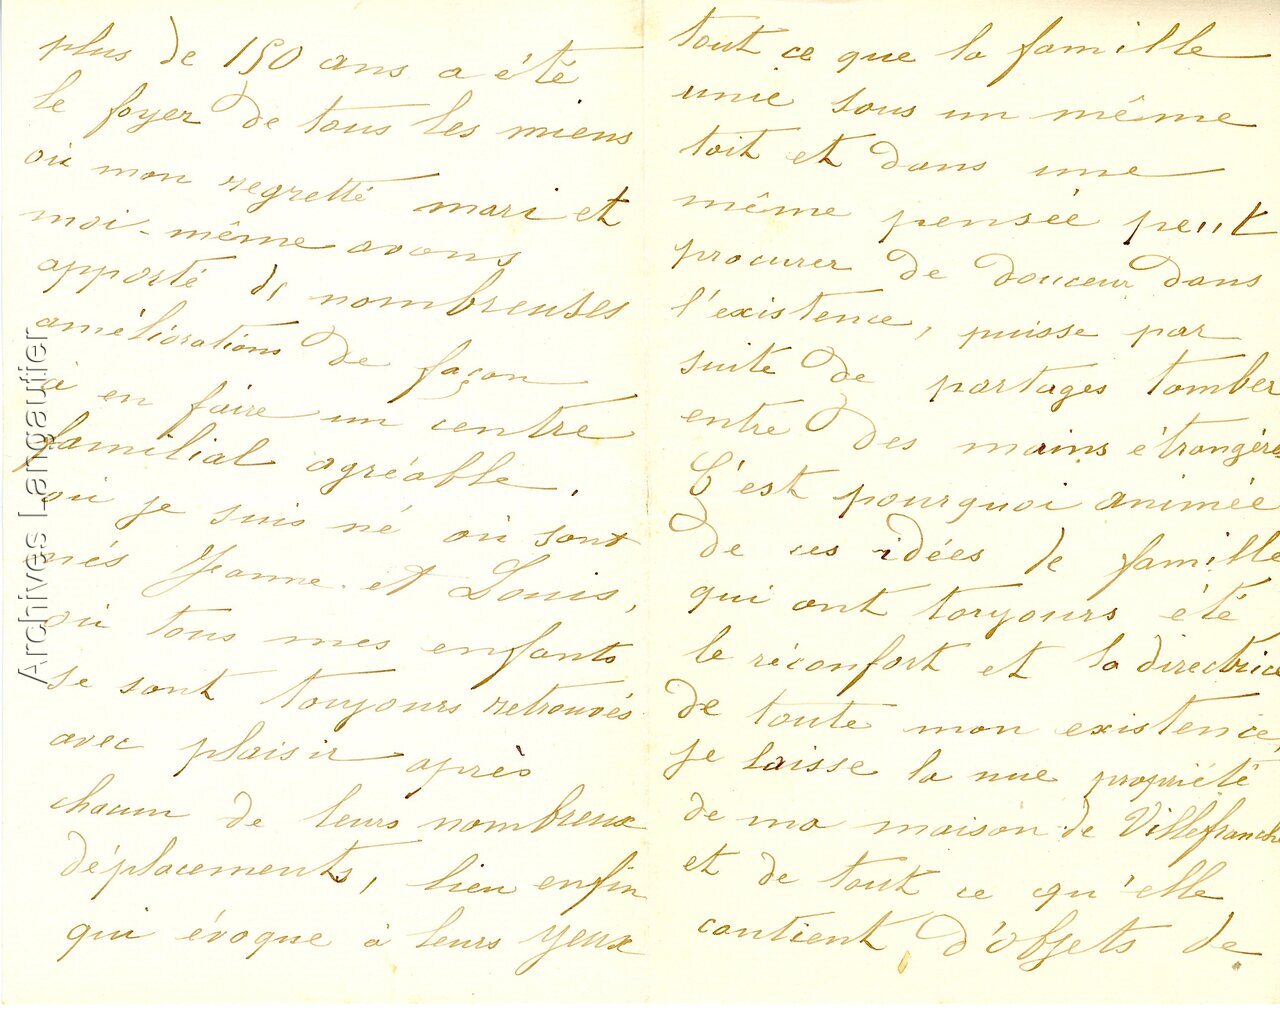 plus de 150 ans a été
le foyer de tous les miens
où mon regretté mari et
moi-même avons
apporté de nombreuses
améliorations de façon
à en faire un centre
familial agréable,
où je suis né où sont
nés Jeanne et Louis,
où tous mes enfants
se sont toujours retrouvés
avec plaisir après
chacun de leurs nombreux
déplacements, lien enfin
qui évoque à leurs yeux
tout ce que la famille
unie sous un même
toit et dans une
même pensée peut
procurer de douceur dans
l'existence, puisse par
suite de partages tomber
entre des mains étrangères
C'est pourquoi animée
de ces idées de famille
qui ont toryours été
le réconfort et la directrice
de toute mon existence,
je laisse la nue propriété
de ma maison de Villefranche
et de tout ce qu'elle
contient, d'objets de
Archives Langautier